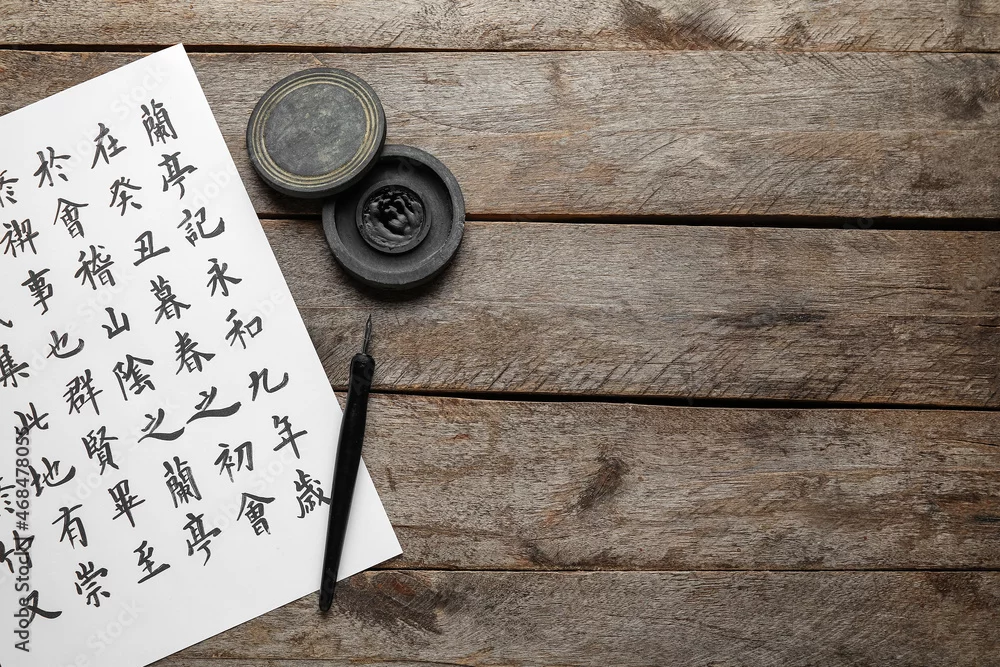 蘭亭記永和九年歲
在癸丑暮春之初會
於會稽山陰之蘭亭
禊事也群賢畢至
集此地有崇
竹又
Adobe Stock